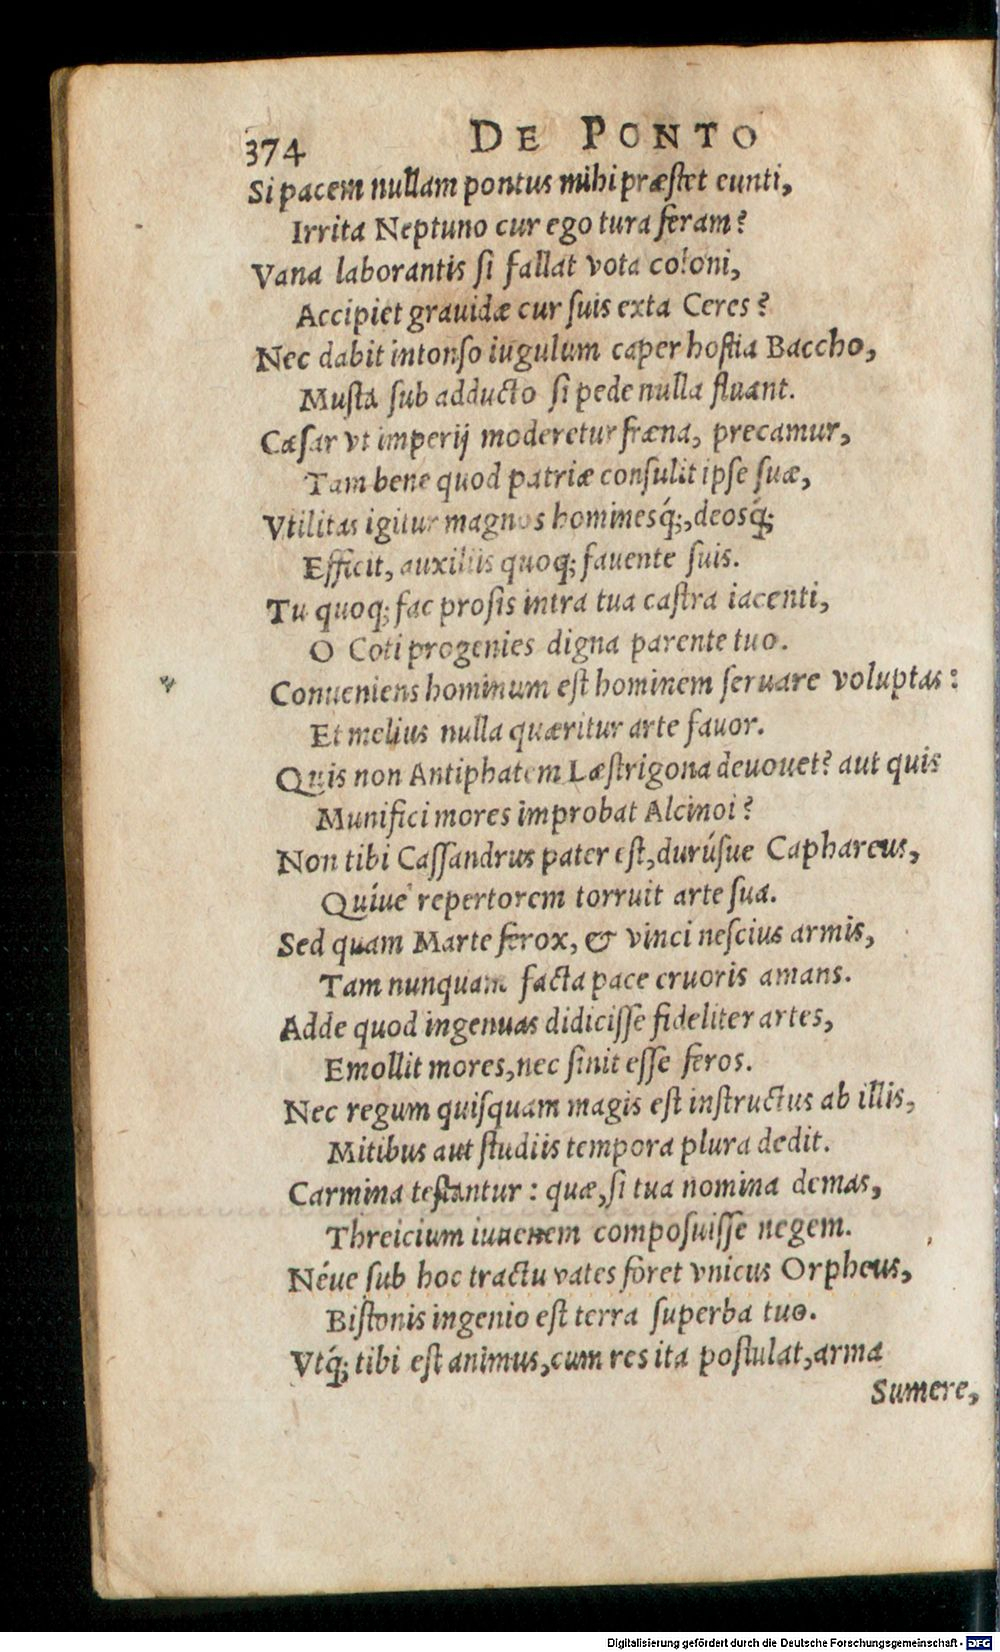 374 DE PONTO
Si pacem nullam pontus mihi præstet eunti,
Irrita Neptuno cur ego tura feram?
Vana laborantis si fallat vota coloni,
Accipiet grauidæ cur suis exta Ceres?
Nec dabit intonso iugulum caper hostia Baccho,
Musta sub adducto si pede nulla fluant.
Cæsar vt imperij moderetur fræna, precamur,
Tam bene quod patriæ consulit ipse suæ,
Vtilitas igitur magnos hominesq́;, deosq́;
Efficit, auxiliis quoq; fauente suis.
Tu quoq; fac prosis intra tua castra iacenti,
O Coti progenies digna parente tuo.
Conueniens hominum est hominem seruare voluptas:
Et melius nulla quæritur arte fauor.
Quis non Antiphatem Læstrigona deuouet? aut quis
Munifici mores improbat Alcinoi?
Non tibi Cassandrus pater est, durúsue Caphareus,
Quíue repertorem torruit arte sua.
Sed quam Marte ferox, & vinci nescius armis,
Tam nunquam facta pace cruoris amans.
Adde quod ingenuas didicisse fideliter artes,
Emollit mores, nec sinit esse feros.
Nec regum quisquam magis est instructus ab illis,
Mitibus aut studiis tempora plura dedit.
Carmina testantur: quæ, si tua nomina demas,
Threicium iuuenem composuisse negem.
Néue sub hoc tractu vates foret vnicus Orpheus,
Bistonis ingenio est terra superba tuo.
Vtq́; tibi est animus, cum res ita postulat, arma
Sumere,
Digitalisierung gefördert durch die Deutsche Forschungsgemeinschaft - DFG